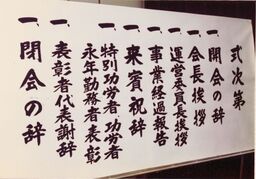 式次第
一、開会の辞
一、会長挨拶
一、運営委員長挨拶
一、事業経過報告
一、来賓祝辞
一、特別功労者、功労者
永年勤務者表彰
一、表彰者代表謝辞
一、閉会の辞